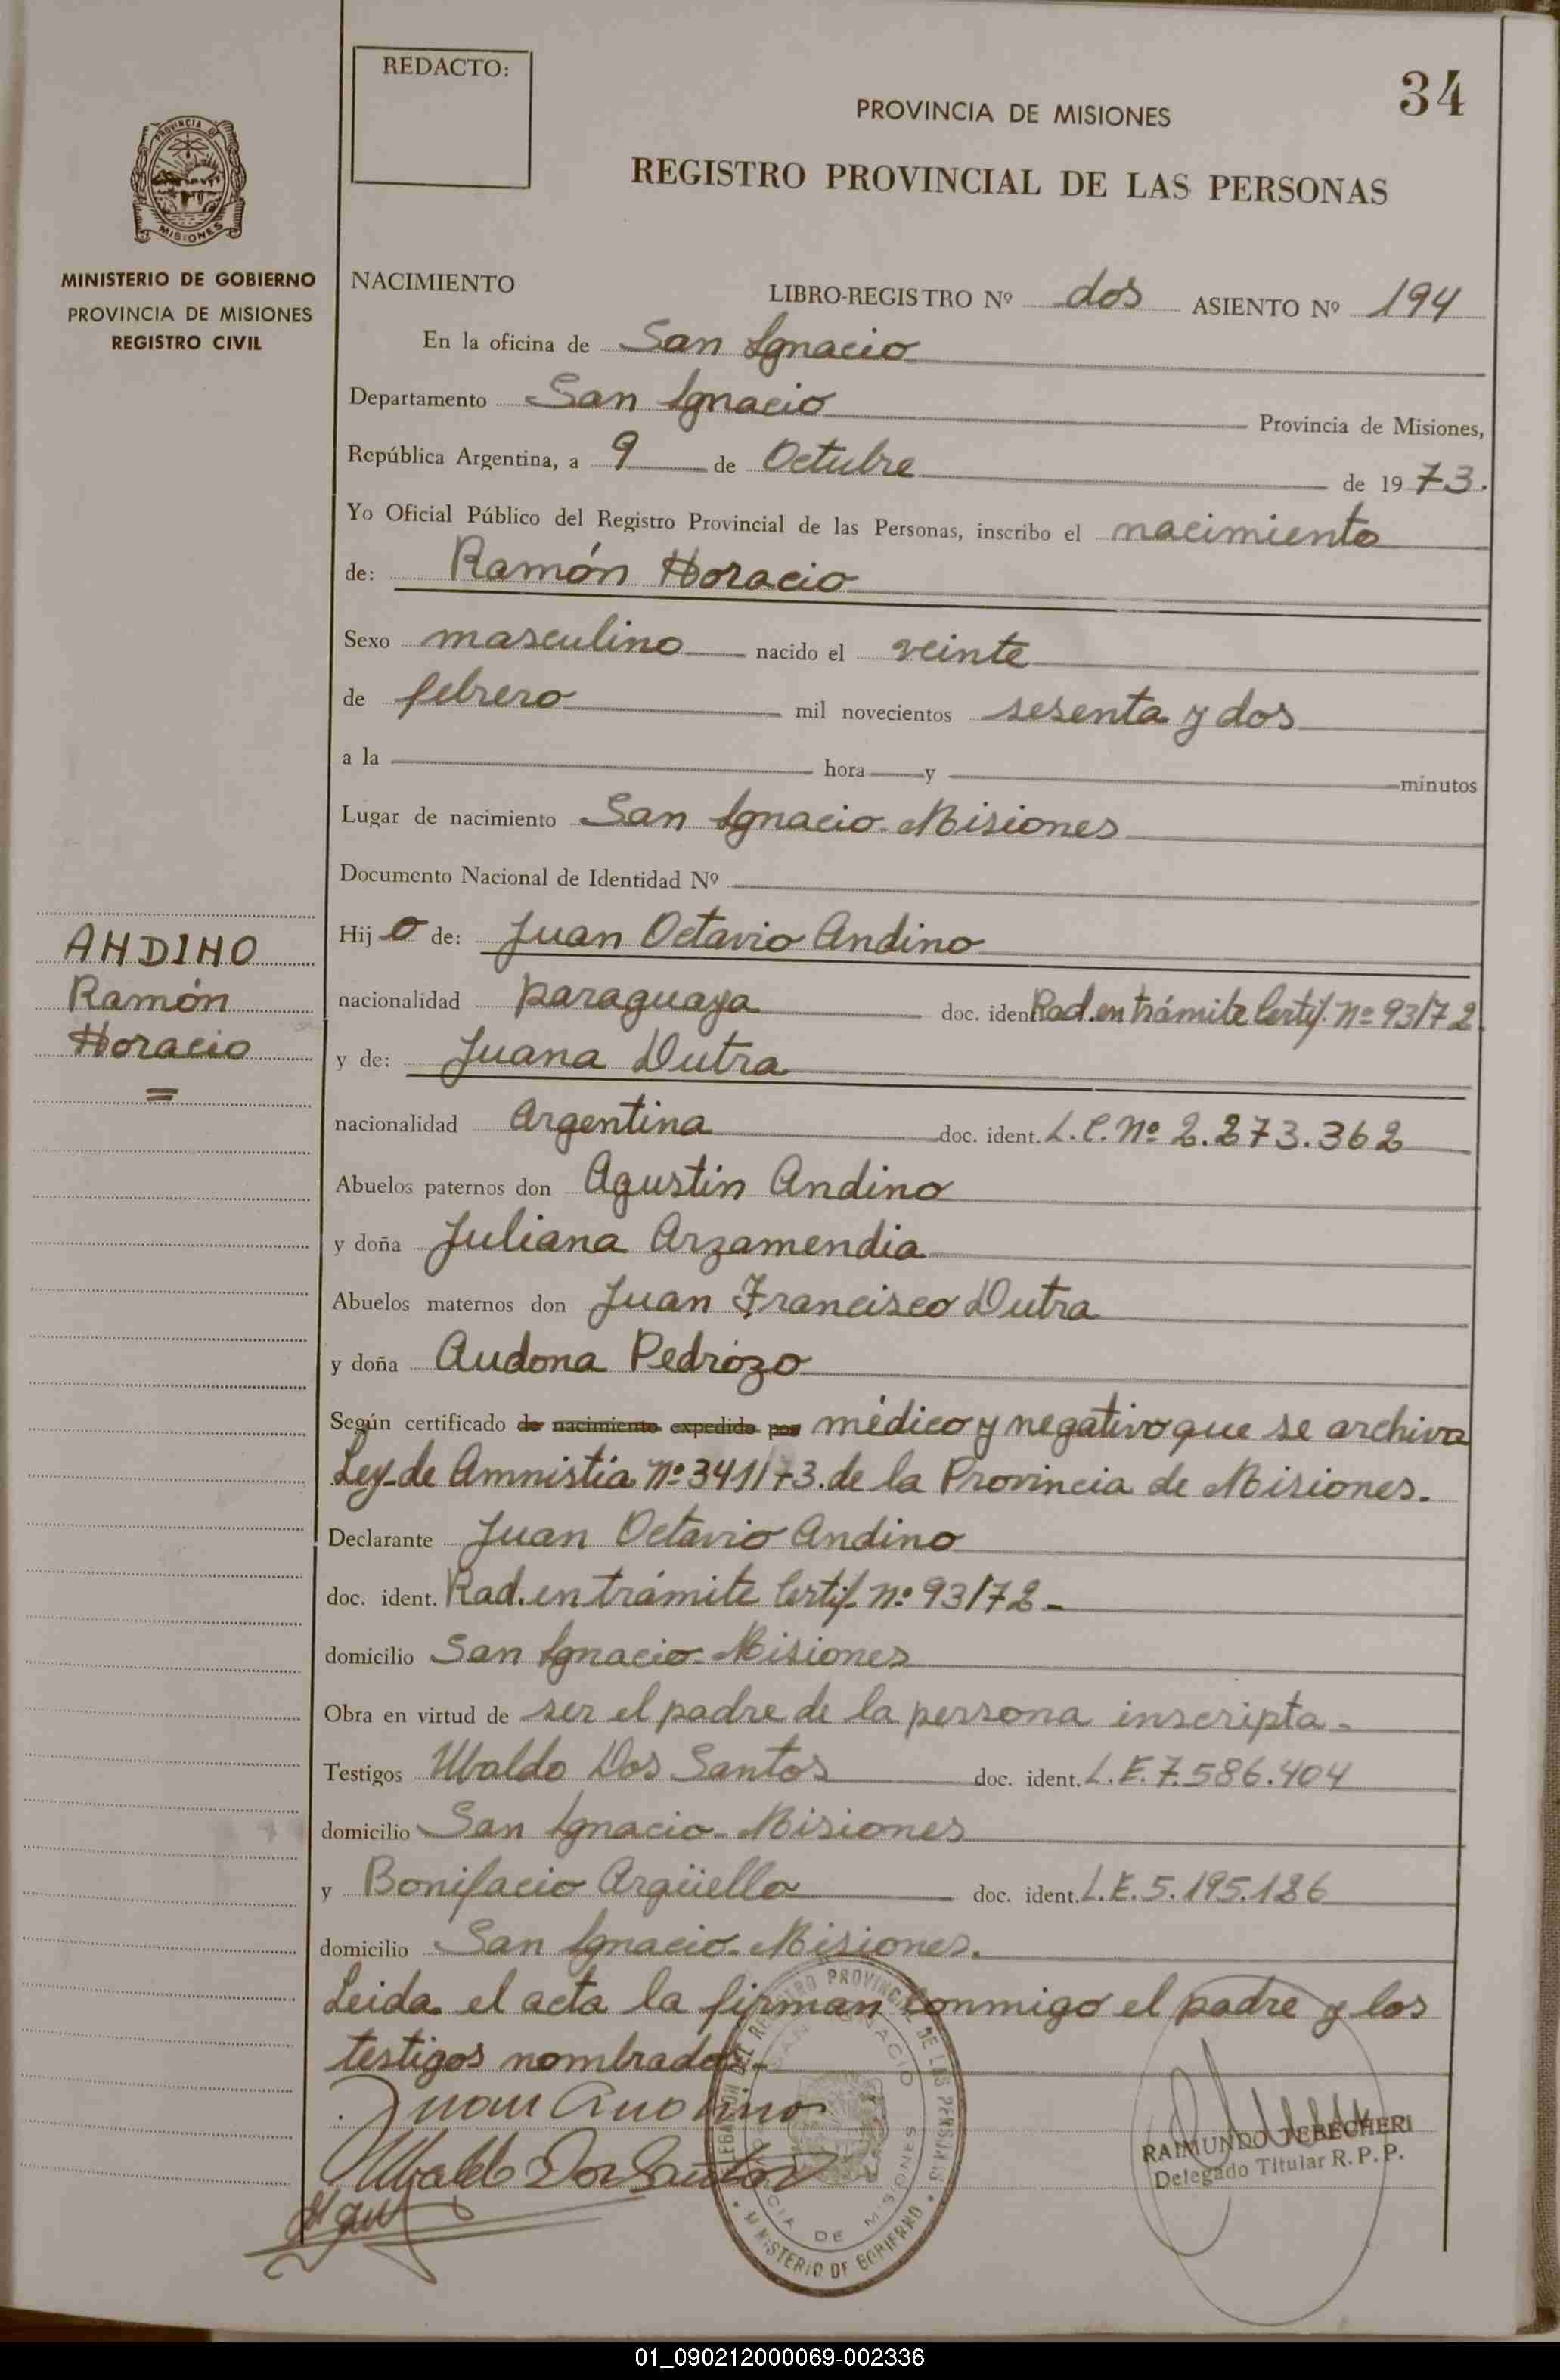 REDACTO:
34
PROVINCIA DE MISIONES
REGISTRO PROVINCIAL DE LAS PERSONAS
PROVINCIA DE
MISIONES
MINISTERIO DE GOBIERNO
PROVINCIA DE MISIONES
REGISTRO CIVIL
NACIMIENTO LIBRO-REGISTRO Nº dos ASIENTO Nº 194
En la oficina de San Ignacio
Departamento San Ignacio Provincia de Misiones,
República Argentina, a 9 de Octubre de 1973.
Yo Oficial Público del Registro Provincial de las Personas, inscribo el nacimiento
de: Ramón Horacio
Sexo masculino nacido el veinte
de febrero mil novecientos sesenta y dos
a la hora y minutos
Lugar de nacimiento San Ignacio. Misiones
Documento Nacional de Identidad Nº
ANDINO
Ramón
Horacio
=
Hijo de: Juan Octavio Andino
nacionalidad paraguaya doc. iden Rad. en trámite Certif. Nº 93/72
y de: Juana Dutra
nacionalidad Argentina doc. ident. L.C. Nº 2.273.362
Abuelos paternos don Agustín Andino
y doña Juliana Arzamendia
Abuelos maternos don Juan Francisco Dutra
y doña Audona Pedrózo
Según certificado de nacimiento expedido por médico y negativo que se archiva
Ley de Amnistía Nº 341/73. de la Provincia de Misiones.
Declarante Juan Octavio Andino
doc. ident. Rad. en trámite Certif. Nº 93/72-
domicilio San Ignacio. Misiones
Obra en virtud de ser el padre de la persona inscripta-
Testigos Ubaldo Dos Santos doc. ident. L.E. 7.586.404
domicilio San Ignacio. Misiones
y Bonifacio Argüello doc. ident. L.E. 5.195.186
domicilio San Ignacio. Misiones.
Leida el acta la firman conmigo el padre y los
testigos nombrados.-
Juan Andino
Ubaldo Dos Santos
DELEGACION DEL REGISTRO PROVINCIAL DE LAS PERSONAS
SAN IGNACIO
PROVINCIA DE MISIONES
MINISTERIO DE GOBIERNO
RAIMUNDO TEBECHERI
Delegado Titular R. P. P.
01_090212000069-002336